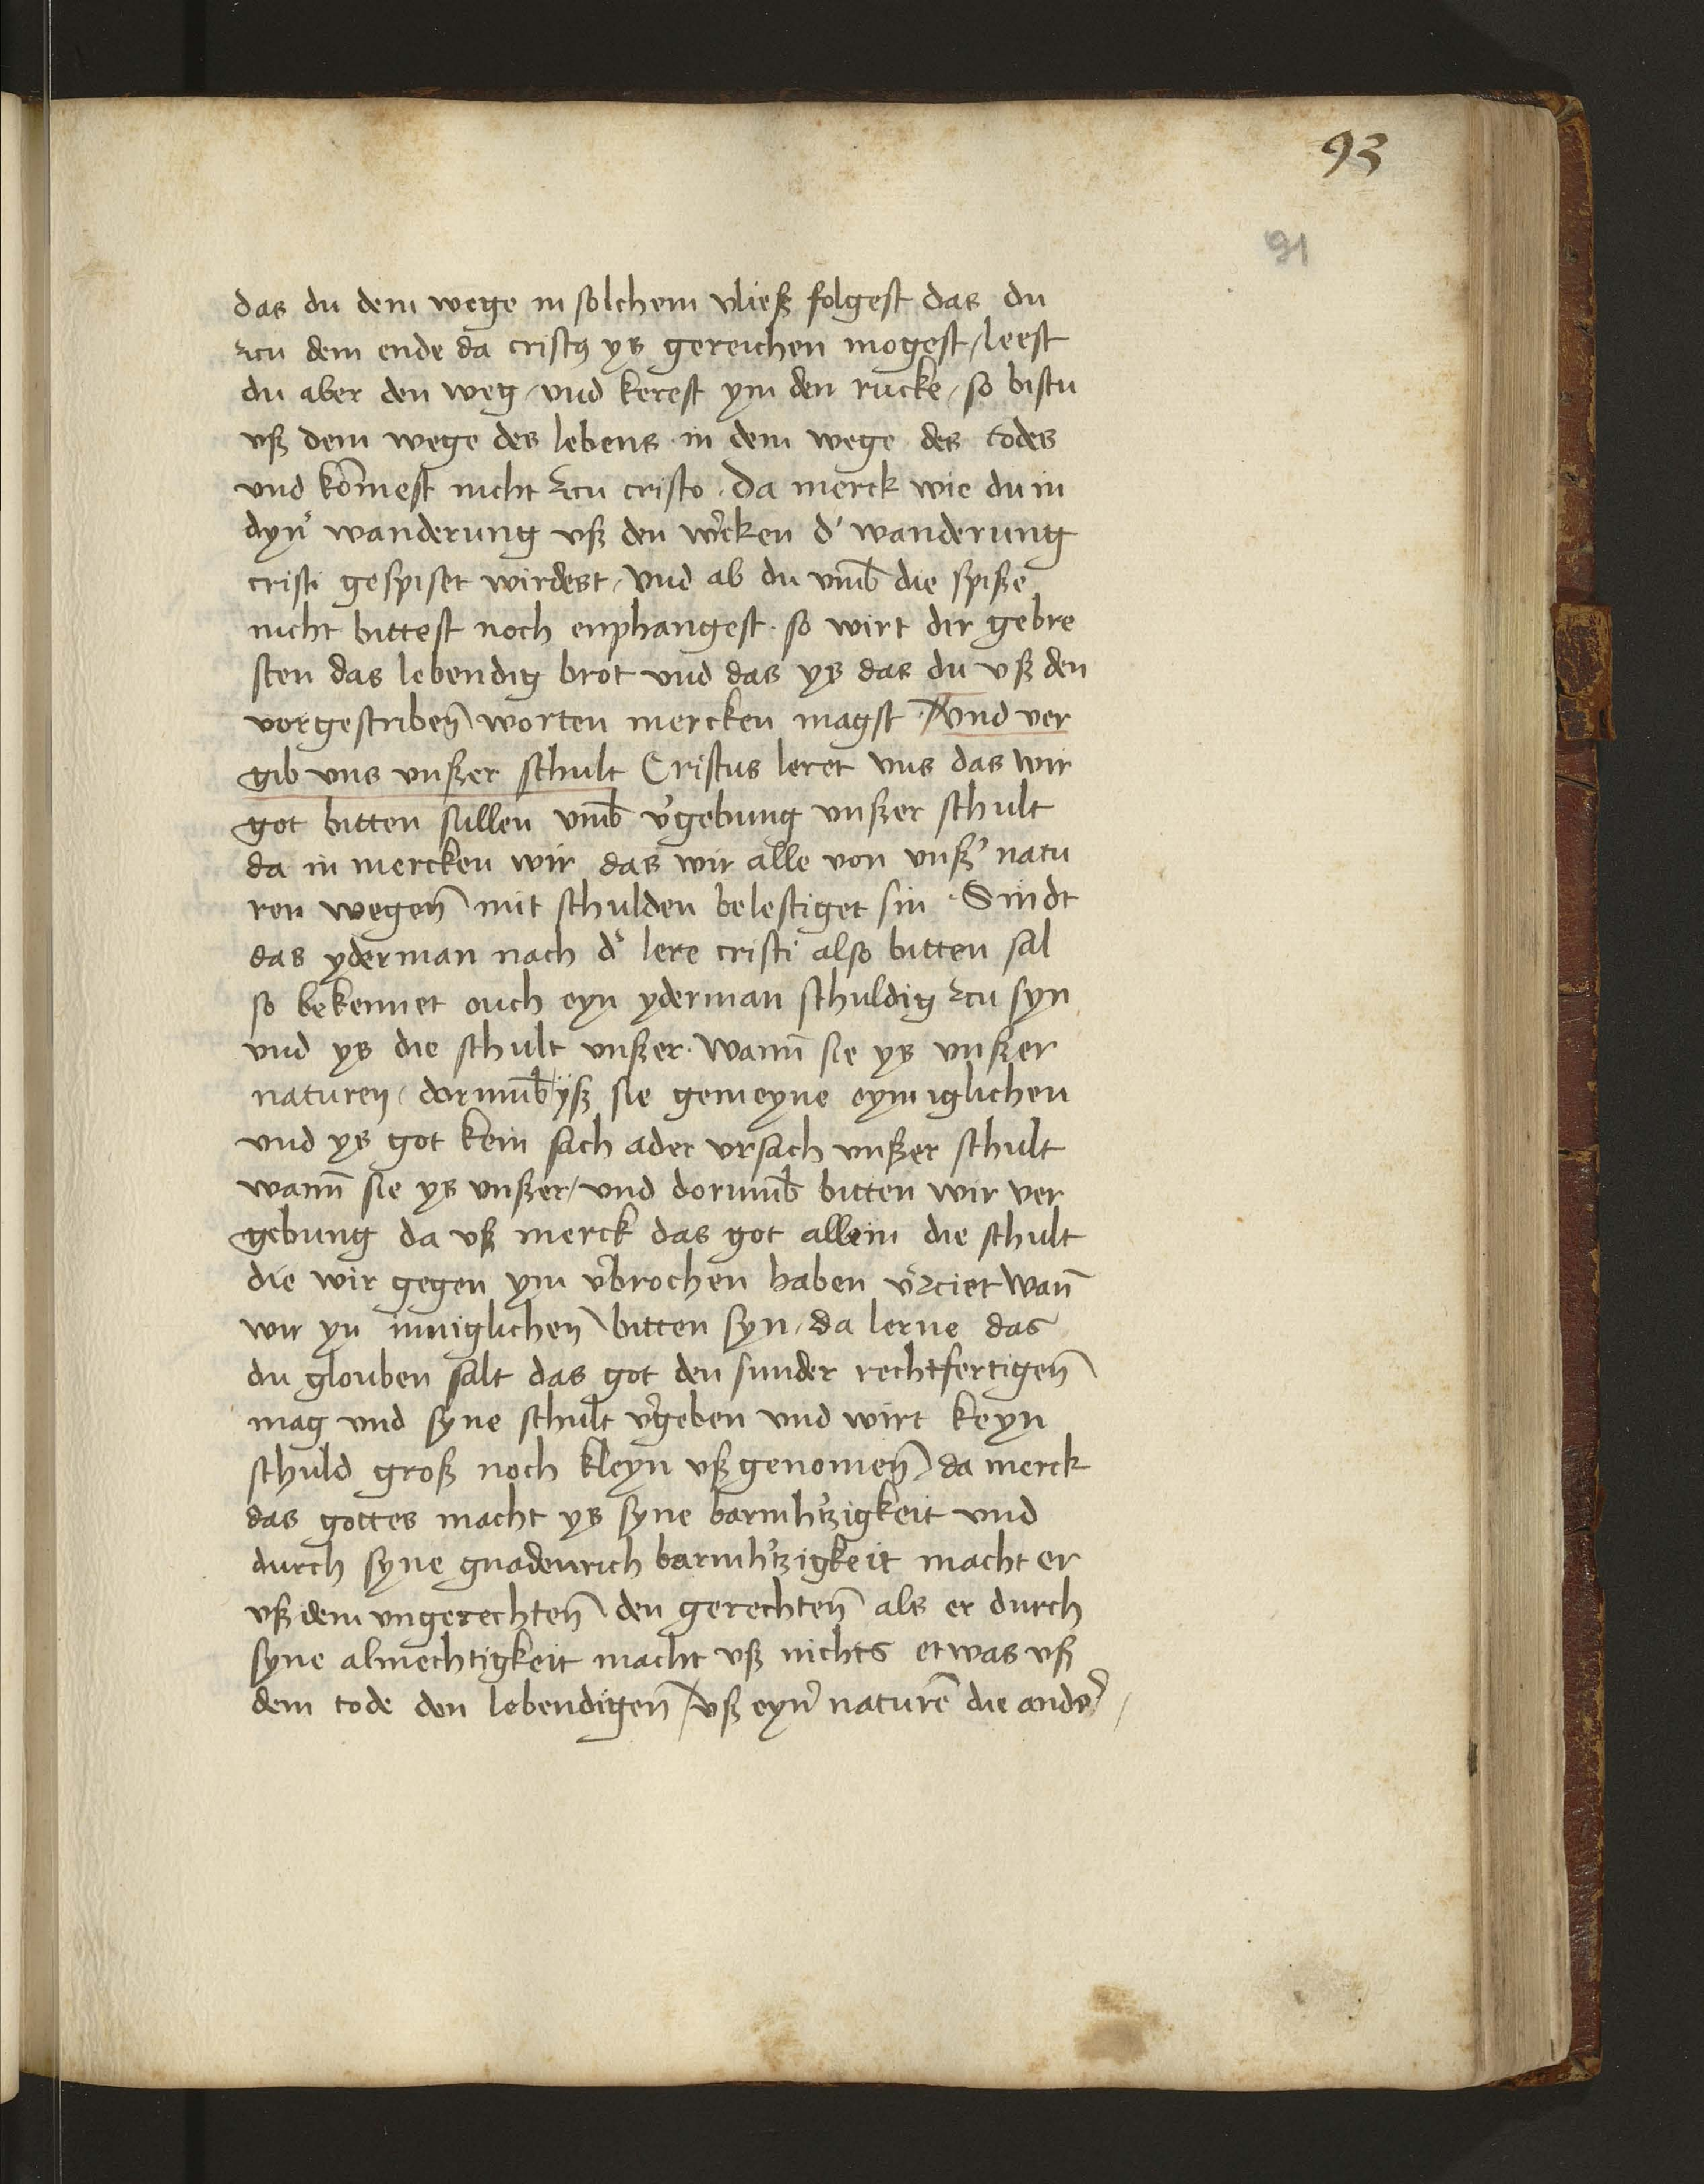 93
91
das du dem wege in solchem vließ folgest das du
zcu dem ende da cristꝯ ys gereichen mogest / leest
du aber den weg / vnd kerest ym den rucke / so bistu
vß dem wege des lebens in dem wege des todes
vnd kōmest nicht zcu cristo · Da merck wie du in
dyn̛ wanderung vß den w̛cken d̛ wanderung
cristi gespiset wirdest / Vnd ab du vmb̄ die spiße
nicht bittest noch enphangest · so wirt dir gebre
sten das lebendig brot vnd das ys das du vß den
vorgescriben̄ worten mercken magst · Vnd ver
gib vns vnßer schult Cristus leret vns das wir
got bitten sullen vmb̄ v̛gebung vnßer schult
da in mercken wir das wir alle von vnß̛ natu
ren wegen̄ mit schulden belestiget sin · Sindt
das yderman nach d̛ lere cristi also bitten sal
so bekennet ouch eyn yderman schuldig zcu syn
vnd ys die schult vnßer · Wann̄ sie ys vnßer
naturen / dorumb̄ yß sie gemeyne eymiglichen
vnd ys got kein sach ader vrsach vnßer schult
wann̄ sie ys vnßer / vnd dorumb̄ bitten wir ver
gebung da vß merck das got allein die schult
die wir gegen ym v̛brochen haben v̛zciet Wan̄
wir yn inniglichen bitten syn / da lerne das
du glouben salt das got den sunder rechtfertigen̄
mag vnd syne schult v̛geben vnd wirt keyn
schuld groß noch kleyn vßgenomen̄ da merck
das gottes macht ys syne barmh̛tzigkeit vnd
durch syne gnadenrich barmh̛tzigkeit macht er
vß dem vngerechten̄ den gerechten̄ als er durch
syne almechtigkeit macht vß nichts etwas vß
dem tode den lebendigen̄ / vß eyn̛ naturē die ander̛ /